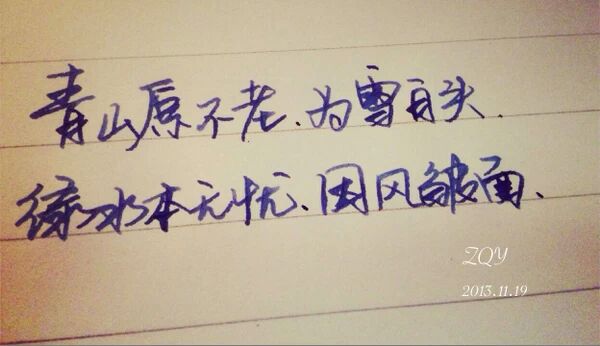 青山原不老、为雪白头、
绿水本无忧、因风皱面、
ZQY
2013.11.19